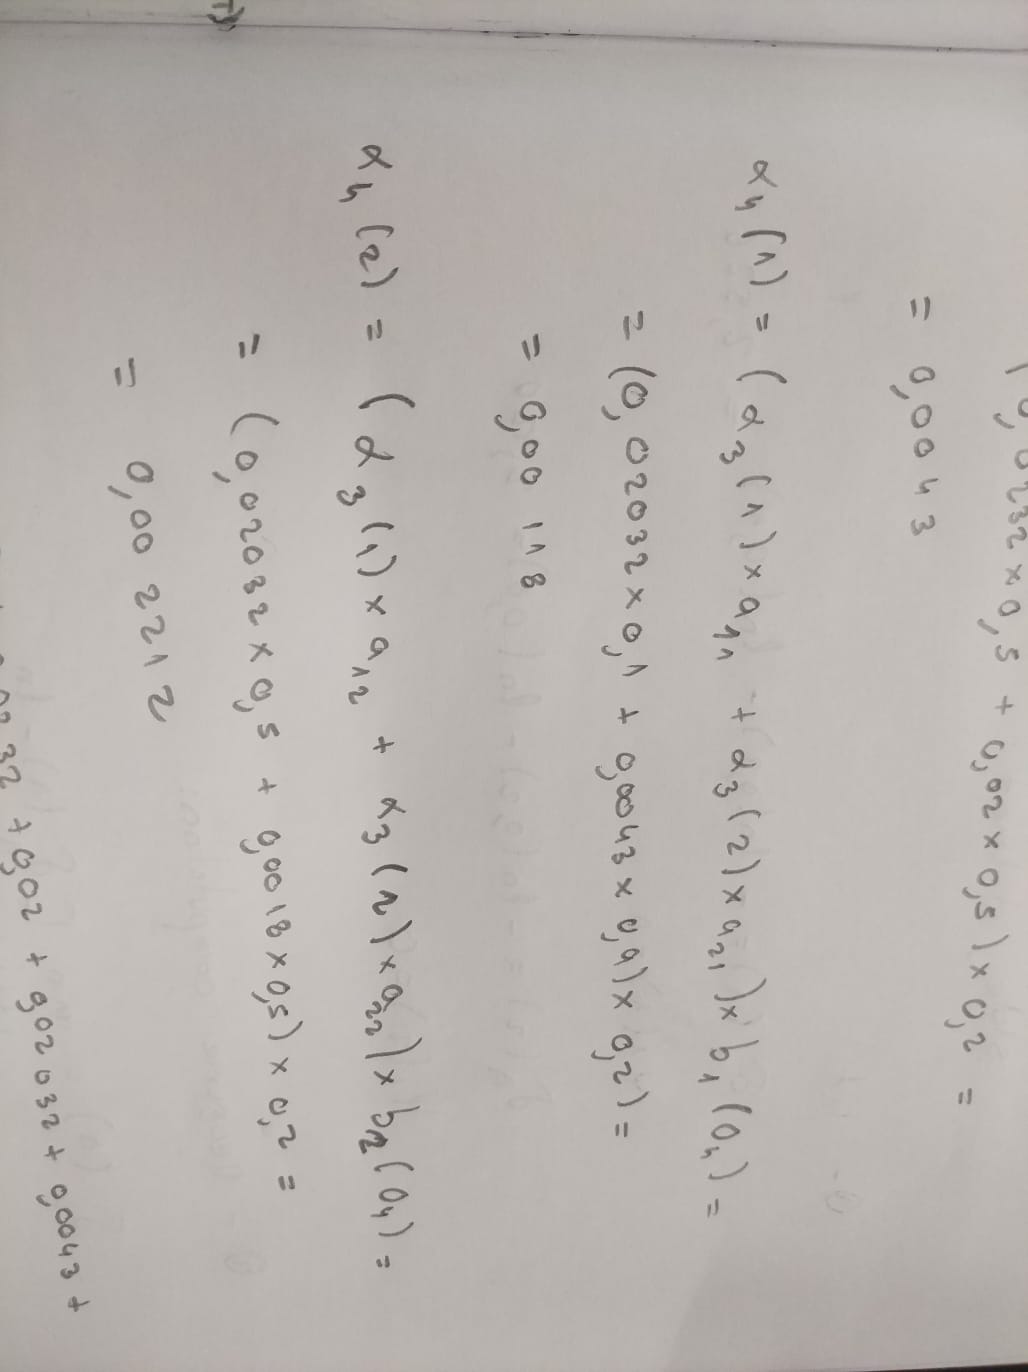 0,0232 x 0,5 + 0,02 x 0,5) x 0,2 =
= 0,0043
α₄(1) = (α₃(1) x a₁₁ + α₃(2) x a₂₁) x b₁(O₄) =
= (0,02032 x 0,1 + 0,0043 x 0,9) x 0,2) =
= 0,00118
α₄(2) = (α₃(1) x a₁₂ + α₃(2) x a₂₂) x b₂(O₄) =
= (0,02032 x 0,5 + 0,0018 x 0,5) x 0,2 =
= 0,002212
32 + 0,02 + 0,02032 + 0,0043 +